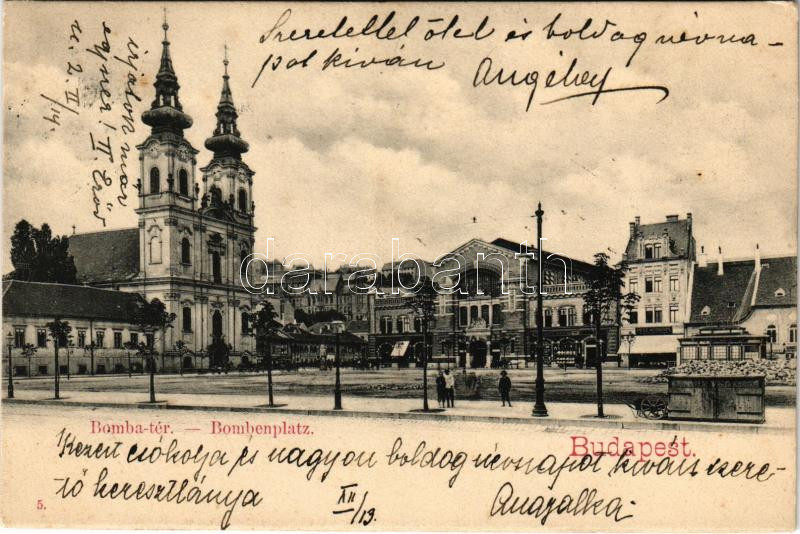 Szeretettel ölel és boldog névna-
pot kíván Angéley
irjatok már
egyner! II. Erőd
u. 2. II/14.
darabanth
Bomba-tér. — Bombenplatz.
Budapest.
Kezeit csókolja és nagyon boldog névnapot kíván szere-
tő keresztlánya XII/13. Anazalka
5.